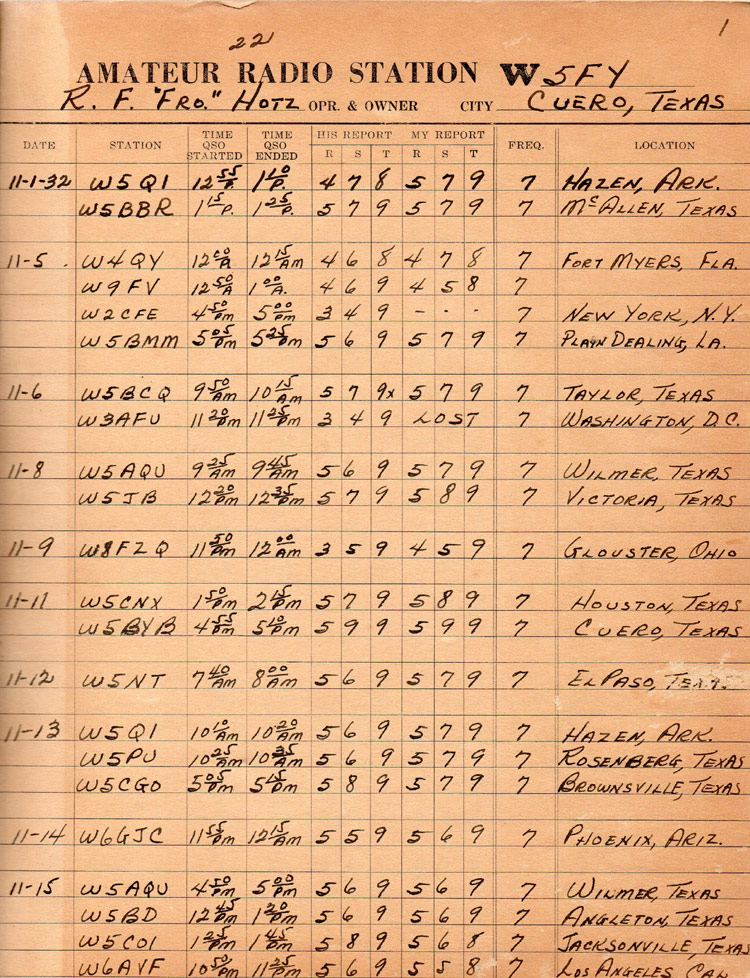 22 1
AMATEUR RADIO STATION W5FY
R. F. "FRO." HOTZ OPR. & OWNER CITY CUERO, TEXAS
DATE STATION TIME QSO STARTED TIME QSO ENDED HIS REPORT R S T MY REPORT R S T FREQ. LOCATION
11-1-32 W5QI 12 55 P. 1 10 P. 4 7 8 5 7 9 7 HAZEN, ARK.
W5BBR 1 15 P. 1 25 P. 5 7 9 5 7 9 7 McALLEN, TEXAS
11-5 . W4QY 12 00 A 12 15 AM 4 6 8 4 7 8 7 FORT MYERS, FLA.
W9FV 12 50 A 1 00 A. 4 6 9 4 5 8 7
W2CFE 4 50 PM 5 00 PM 3 4 9 - - - 7 NEW YORK, N.Y.
W5BMM 5 05 PM 5 25 PM 5 6 9 5 7 9 7 PLAIN DEALING, LA.
11-6 W5BCQ 9 50 AM 10 15 AM 5 7 9x 5 7 9 7 TAYLOR, TEXAS
W3AFU 11 20 PM 11 25 PM 3 4 9 LOST 7 WASHINGTON, D.C.
11-8 W5AQU 9 25 AM 9 45 AM 5 6 9 5 7 9 7 WILMER, TEXAS
W5JB 12 20 PM 12 35 PM 5 7 9 5 8 9 7 VICTORIA, TEXAS
11-9 W8FZQ 11 50 PM 12 00 AM 3 5 9 4 5 9 7 GLOUSTER, OHIO
11-11 W5CNX 1 50 PM 2 15 PM 5 7 9 5 8 9 7 HOUSTON, TEXAS
W5BYB 4 55 PM 5 10 PM 5 9 9 5 9 9 7 CUERO, TEXAS
11-12 W5NT 7 40 AM 8 00 AM 5 6 9 5 7 9 7 EL PASO,
11-13 W5QI 10 10 AM 10 20 AM 5 6 9 5 7 9 7 HAZEN, ARK.
W5PU 10 25 AM 10 35 AM 5 6 9 5 7 9 7 ROSENBERG, TEXAS
W5CGO 5 05 PM 5 15 PM 5 8 9 5 7 9 7 BROWNSVILLE, TEXAS
11-14 W6GJC 11 55 PM 12 15 AM 5 5 9 5 6 9 7 PHOENIX, ARIZ.
11-15 W5AQU 4 50 PM 5 00 PM 5 6 9 5 6 9 7 WILMER, TEXAS
W5BD 12 45 PM 1 20 PM 5 6 9 5 6 9 7 ANGLETON, TEXAS
W5COI 1 25 PM 1 45 PM 5 8 9 5 6 8 7 JACKSONVILLE, TEXAS
W6AVF 10 55 PM 11 25 PM 5 6 9 5 5 8 7 LOS ANGELES, CAL